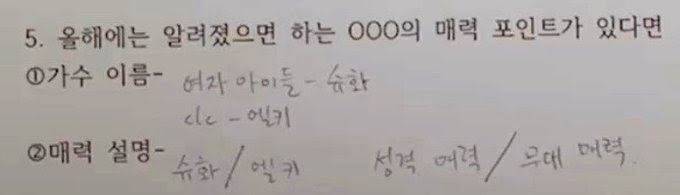 5. 올해에는 알려졌으면 하는 OOO의 매력 포인트가 있다면
①가수 이름- 여자 아이들 - 슈화
clc - 엘키
②매력 설명- 슈화 / 엘키 성격 매력 / 무대 매력.